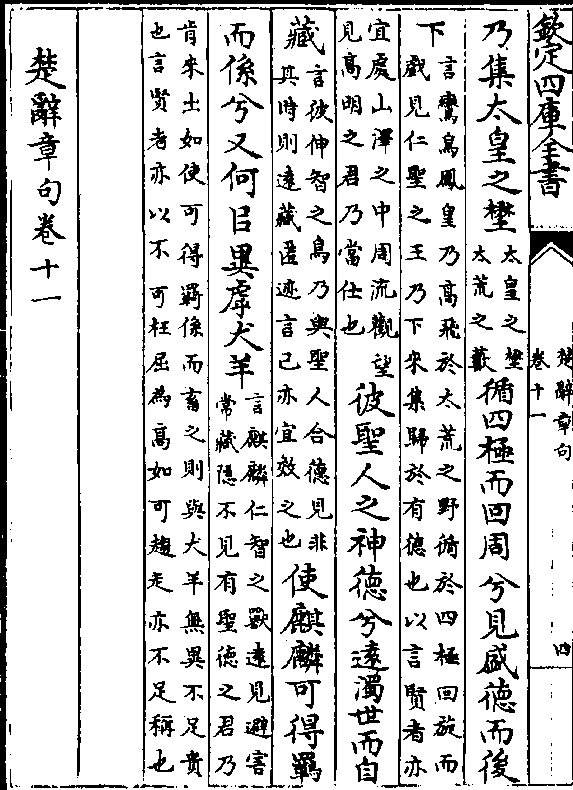 欽定四庫全書
楚辭章句
卷十一
四
乃集太皇之壄
太皇之壄
太荒之藪
循四極而回周兮見盛德而後
下
言鸞鳥鳳皇乃高飛於太荒之野循於四極回旋而
戲見仁聖之王乃下來集歸於有德也以言賢者亦
宜處山澤之中周流觀望
見高明之君乃當仕也
彼聖人之神德兮遠濁世而自
藏
言彼神智之鳥乃與聖人合德見非
其時則遠藏匿迹言己亦宜效之也
使麒麟可得羈
而係兮又何㠯異虖犬羊
言麒麟仁智之獸遠見避害
常藏隱不見有聖德之君乃
肯來士如使可得羈係而畜之則與犬羊無異不足貴
也言賢者亦以不可枉屈為高如可趨走亦不足稱也
楚辭章句卷十一